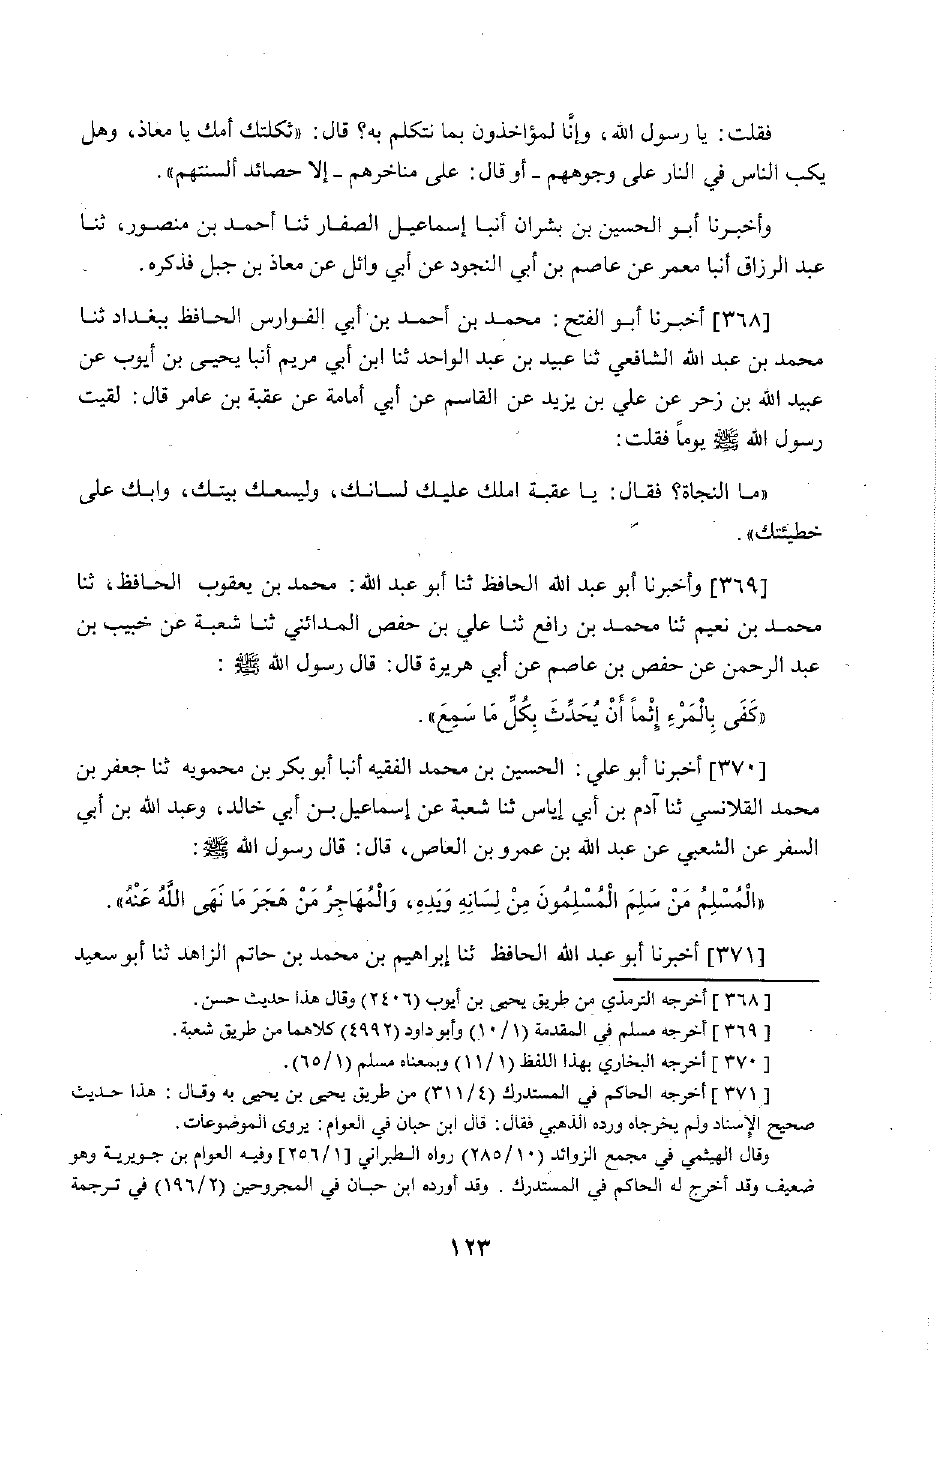 فقلت: يا رسول الله، وإنَّا لمؤاخذون بما نتكلم به؟ قال: «ثكلتك أمك يا معاذ، وهل
يكب الناس في النار على وجوههم ـ أو قال: على مناخرهم ـ إلا حصائد ألسنتهم».
وأخبرنا أبو الحسين بن بشران أنبا إسماعيل الصفار ثنا أحمد بن منصور، ثنا
عبد الرزاق أنبا معمر عن عاصم بن أبي النجود عن أبي وائل عن معاذ بن جبل فذكره.
[٣٦٨] أخبرنا أبو الفتح: محمد بن أحمد بن أبي الفوارس الحافظ ببغداد ثنا
محمد بن عبد الله الشافعي ثنا عبيد بن عبد الواحد ثنا ابن أبي مريم أنبا يحيى بن أيوب عن
عبيد الله بن زحر عن علي بن يزيد عن القاسم عن أبي أمامة عن عقبة بن عامر قال: لقيت
رسول الله ﷺ يوماً فقلت:
«ما النجاة؟ فقال: يا عقبة املك عليك لسانك، وليسعك بيتك، وابك على
خطيئتك».
[٣٦٩] وأخبرنا أبو عبد الله الحافظ ثنا أبو عبد الله: محمد بن يعقوب الحافظ، ثنا
محمد بن نعيم ثنا محمد بن رافع ثنا علي بن حفص المدائني ثنا شعبة عن خبيب بن
عبد الرحمن عن حفص بن عاصم عن أبي هريرة قال: قال رسول الله ﷺ :
«كَفَى بِالْمَرْءِ إِثْماً أَنْ يُحَدِّثَ بِكُلِّ مَا سَمِعَ».
[٣٧٠] أخبرنا أبو علي: الحسين بن محمد الفقيه أنبا أبو بكر بن محمويه ثنا جعفر بن
محمد القلانسي ثنا آدم بن أبي إياس ثنا شعبة عن إسماعيل بن أبي خالد، وعبد الله بن أبي
السفر عن الشعبي عن عبد الله بن عمرو بن العاص، قال: قال رسول الله ﷺ:
«الْمُسْلِمُ مَنْ سَلِمَ الْمُسْلِمُونَ مِنْ لِسَانِهِ وَيَدِهِ، وَالْمُهَاجِرُ مَنْ هَجَرَ مَا نَهَى اللَّهُ عَنْهُ».
[٣٧١] أخبرنا أبو عبد الله الحافظ ثنا إبراهيم بن محمد بن حاتم الزاهد ثنا أبو سعيد
[٣٦٨] أخرجه الترمذي من طريق يحيى بن أيوب (٢٤٠٦) وقال هذا حديث حسن.
[٣٦٩] أخرجه مسلم في المقدمة (١٠/١) وأبو داود (٤٩٩٢) كلاهما من طريق شعبة.
[٣٧٠] أخرجه البخاري بهذا اللفظ (١١/١) وبمعناه مسلم (٦٥/١).
[٣٧١] أخرجه الحاكم في المستدرك (٣١١/٤) من طريق يحيى بن يحيى به وقال : هذا حديث
صحيح الإسناد ولم يخرجاه ورده الذهبي فقال: قال ابن حبان في العوام: يروى الموضوعات.
وقال الهيثمي في مجمع الزوائد (٢٨٥/١٠) رواه الطبراني [٢٥٦/١] وفيه العوام بن جويرية وهو
ضعيف وقد أخرج له الحاكم في المستدرك . وقد أورده ابن حبان في المجروحين (١٩٦/٢) في ترجمة
١٢٣